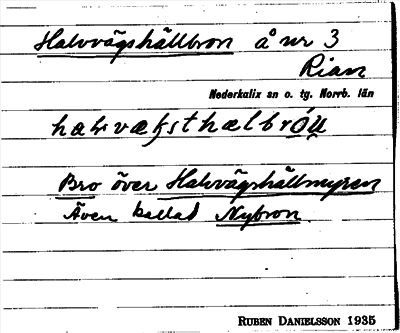 Halvvägshällbron å nr 3
Rian
Nederkalix sn o. tg. Norrb. län
Bro över Halvvägshällmyren
Även kallad Nybron.
RUBEN DANIELSSON 1935